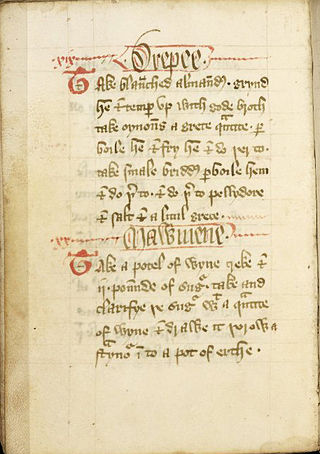 .xix. Drepee.
Take blaunched almaundꝭ. grynd
he & temp vp with gode broth
take oynouns a grete qͣtite. ꝑ
boile he & fry he & do þer to.
take smale briddꝭ ꝑboile hem
& do þͬ to. & do þͬ to pellydore
& salt & a litul grece.
.xx. Mawmene.
Take a potel of wyne greke &
ij. pounde of sugͬ. take and
clarifye þe sugͬ wͭ a qͣtite
of wyne & drawe it þorow a
stynoͬ ī to a pot of erthe.